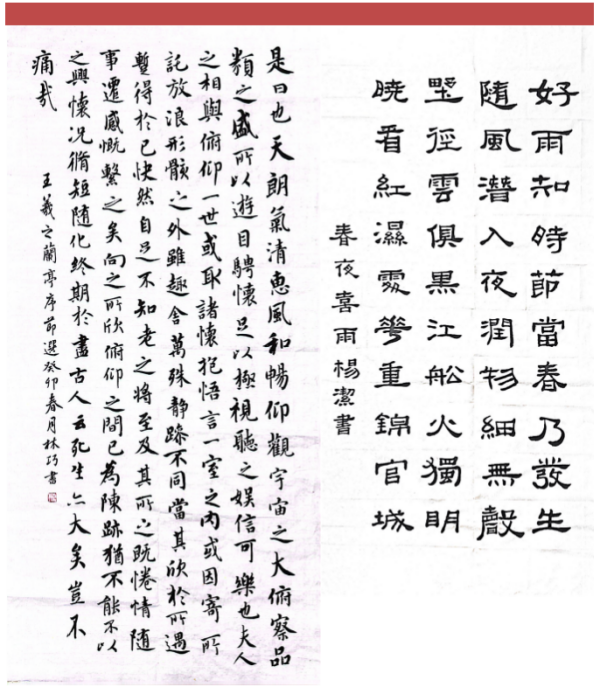 好雨知時節當春乃發生
隨風潛入夜潤物細無聲
野徑雲俱黑江舩火獨明
曉看紅濕處華重錦官城
春夜喜雨楊潔書
是日也天朗氣清惠風和暢仰觀宇宙之大俯察品
類之盛所以遊目騁懷足以極視聽之娛信可樂也夫人
之相與俯仰一世或取諸懷抱悟言一室之内或因寄所
託放浪形骸之外雖趣舍萬殊静躁不同當其欣於所遇
暫得於己快然自足不知老之將至及其所之既惓情隨
事遷感慨繫之矣向之所欣俯仰之間已為陳跡猶不能不以
之興懷況脩短隨化終期於盡古人云死生亦大矣豈不
痛哉
王羲之蘭亭序節選癸卯春月林巧書